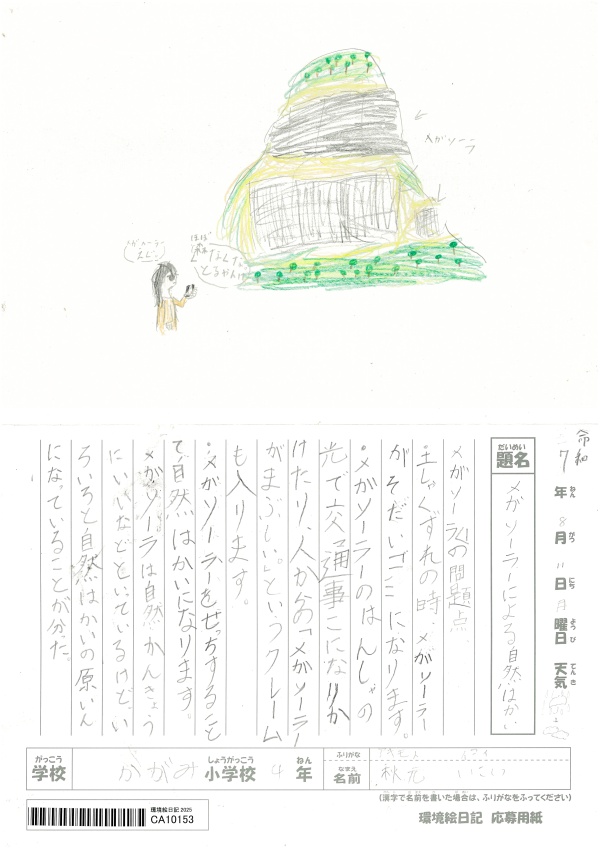 メガソーラー
メガソーラー
まじ
ほぼ
森なんだ
とるやんけ
令和
7年8月11日月曜日 天気
ねん がつ にち ようび てんき
だいめい
題名
メガソーラーによる自然はかい
メガソーラーの問題点
・土しゃくずれの時、メガソーラー
がそだいゴミになります。
・メガソーラーのはんしゃの
光で交通事こになりか
けたり、人からの「メガソーラー
がまぶしい。」というクレーム
も入ります。
・メガソーラーをせっちすること
で、自然はかいになります。
メガソーラーは自然かんきょう
にいいなどといっているけど、い
ろいろと自然はかいの原いん
になっていることが分た。
がっこう しょうがっこう ねん
学校 かがみ 小学校 4年
ふりがな アキモト
なまえ
名前 秋元 いにい
(漢字で名前を書いた場合は、ふりがなをふってください)
環境絵日記 2025
CA10153
環境絵日記 応募用紙